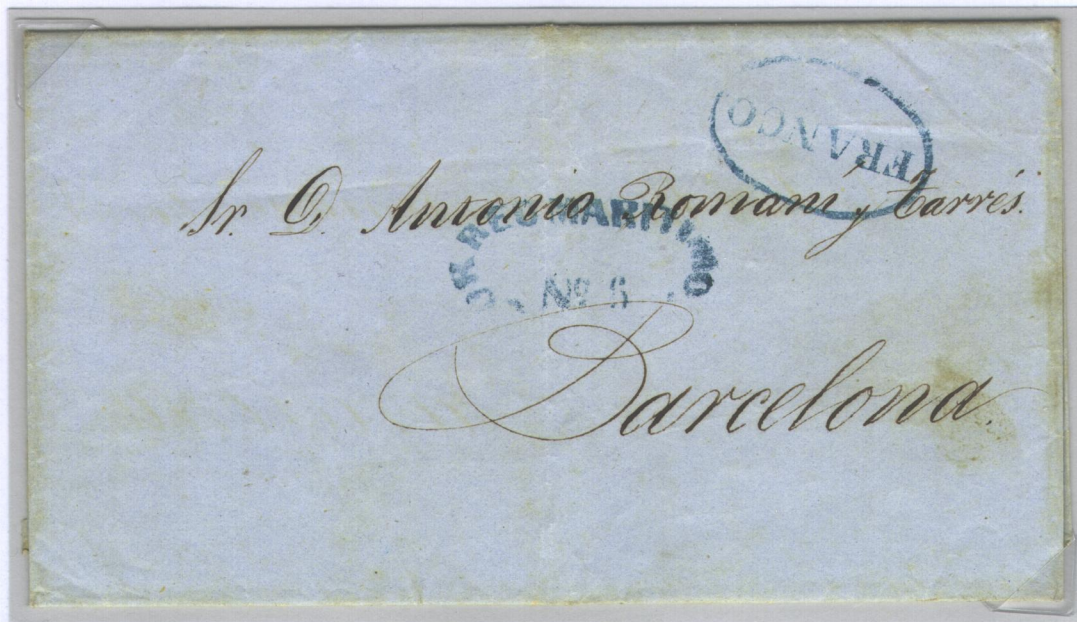 FRANCO
Sr. D. Antonio Romani y Tarrés.
CORREO MARITIMO
Nº 6
Barcelona.